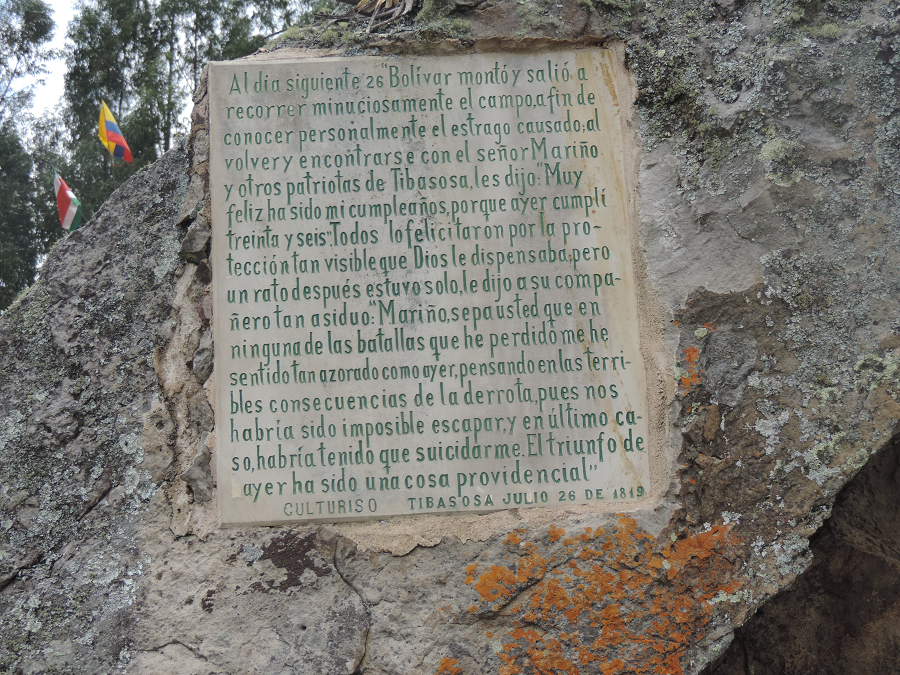 Al dia siguiente 26 "Bolívar montó y salió a
recorrer minuciosamente el campo, a fin de
conocer personalmente el estrago causado; al
volver y encontrarse con el señor Mariño
y otros patriotas de Tibasosa, les dijo: "Muy
feliz ha sido mi cumpleaños, porque ayer cumplí
treinta y seis". Todos lo felicitaron por la pro-
tección tan visible que Dios le dispensaba; pero
un rato después estuvo solo, le dijo a su compa-
ñero tan asiduo: "Mariño, sepa usted que en
ninguna de las batallas que he perdido me he
sentido tan azorado como ayer, pensando en las terri-
bles consecuencias de la derrota, pues nos
habría sido imposible escapar, y en último ca-
so, habría tenido que suicidarme. El triunfo de
ayer ha sido una cosa providencial"
CULTURISO TIBASOSA JULIO 26 DE 1819